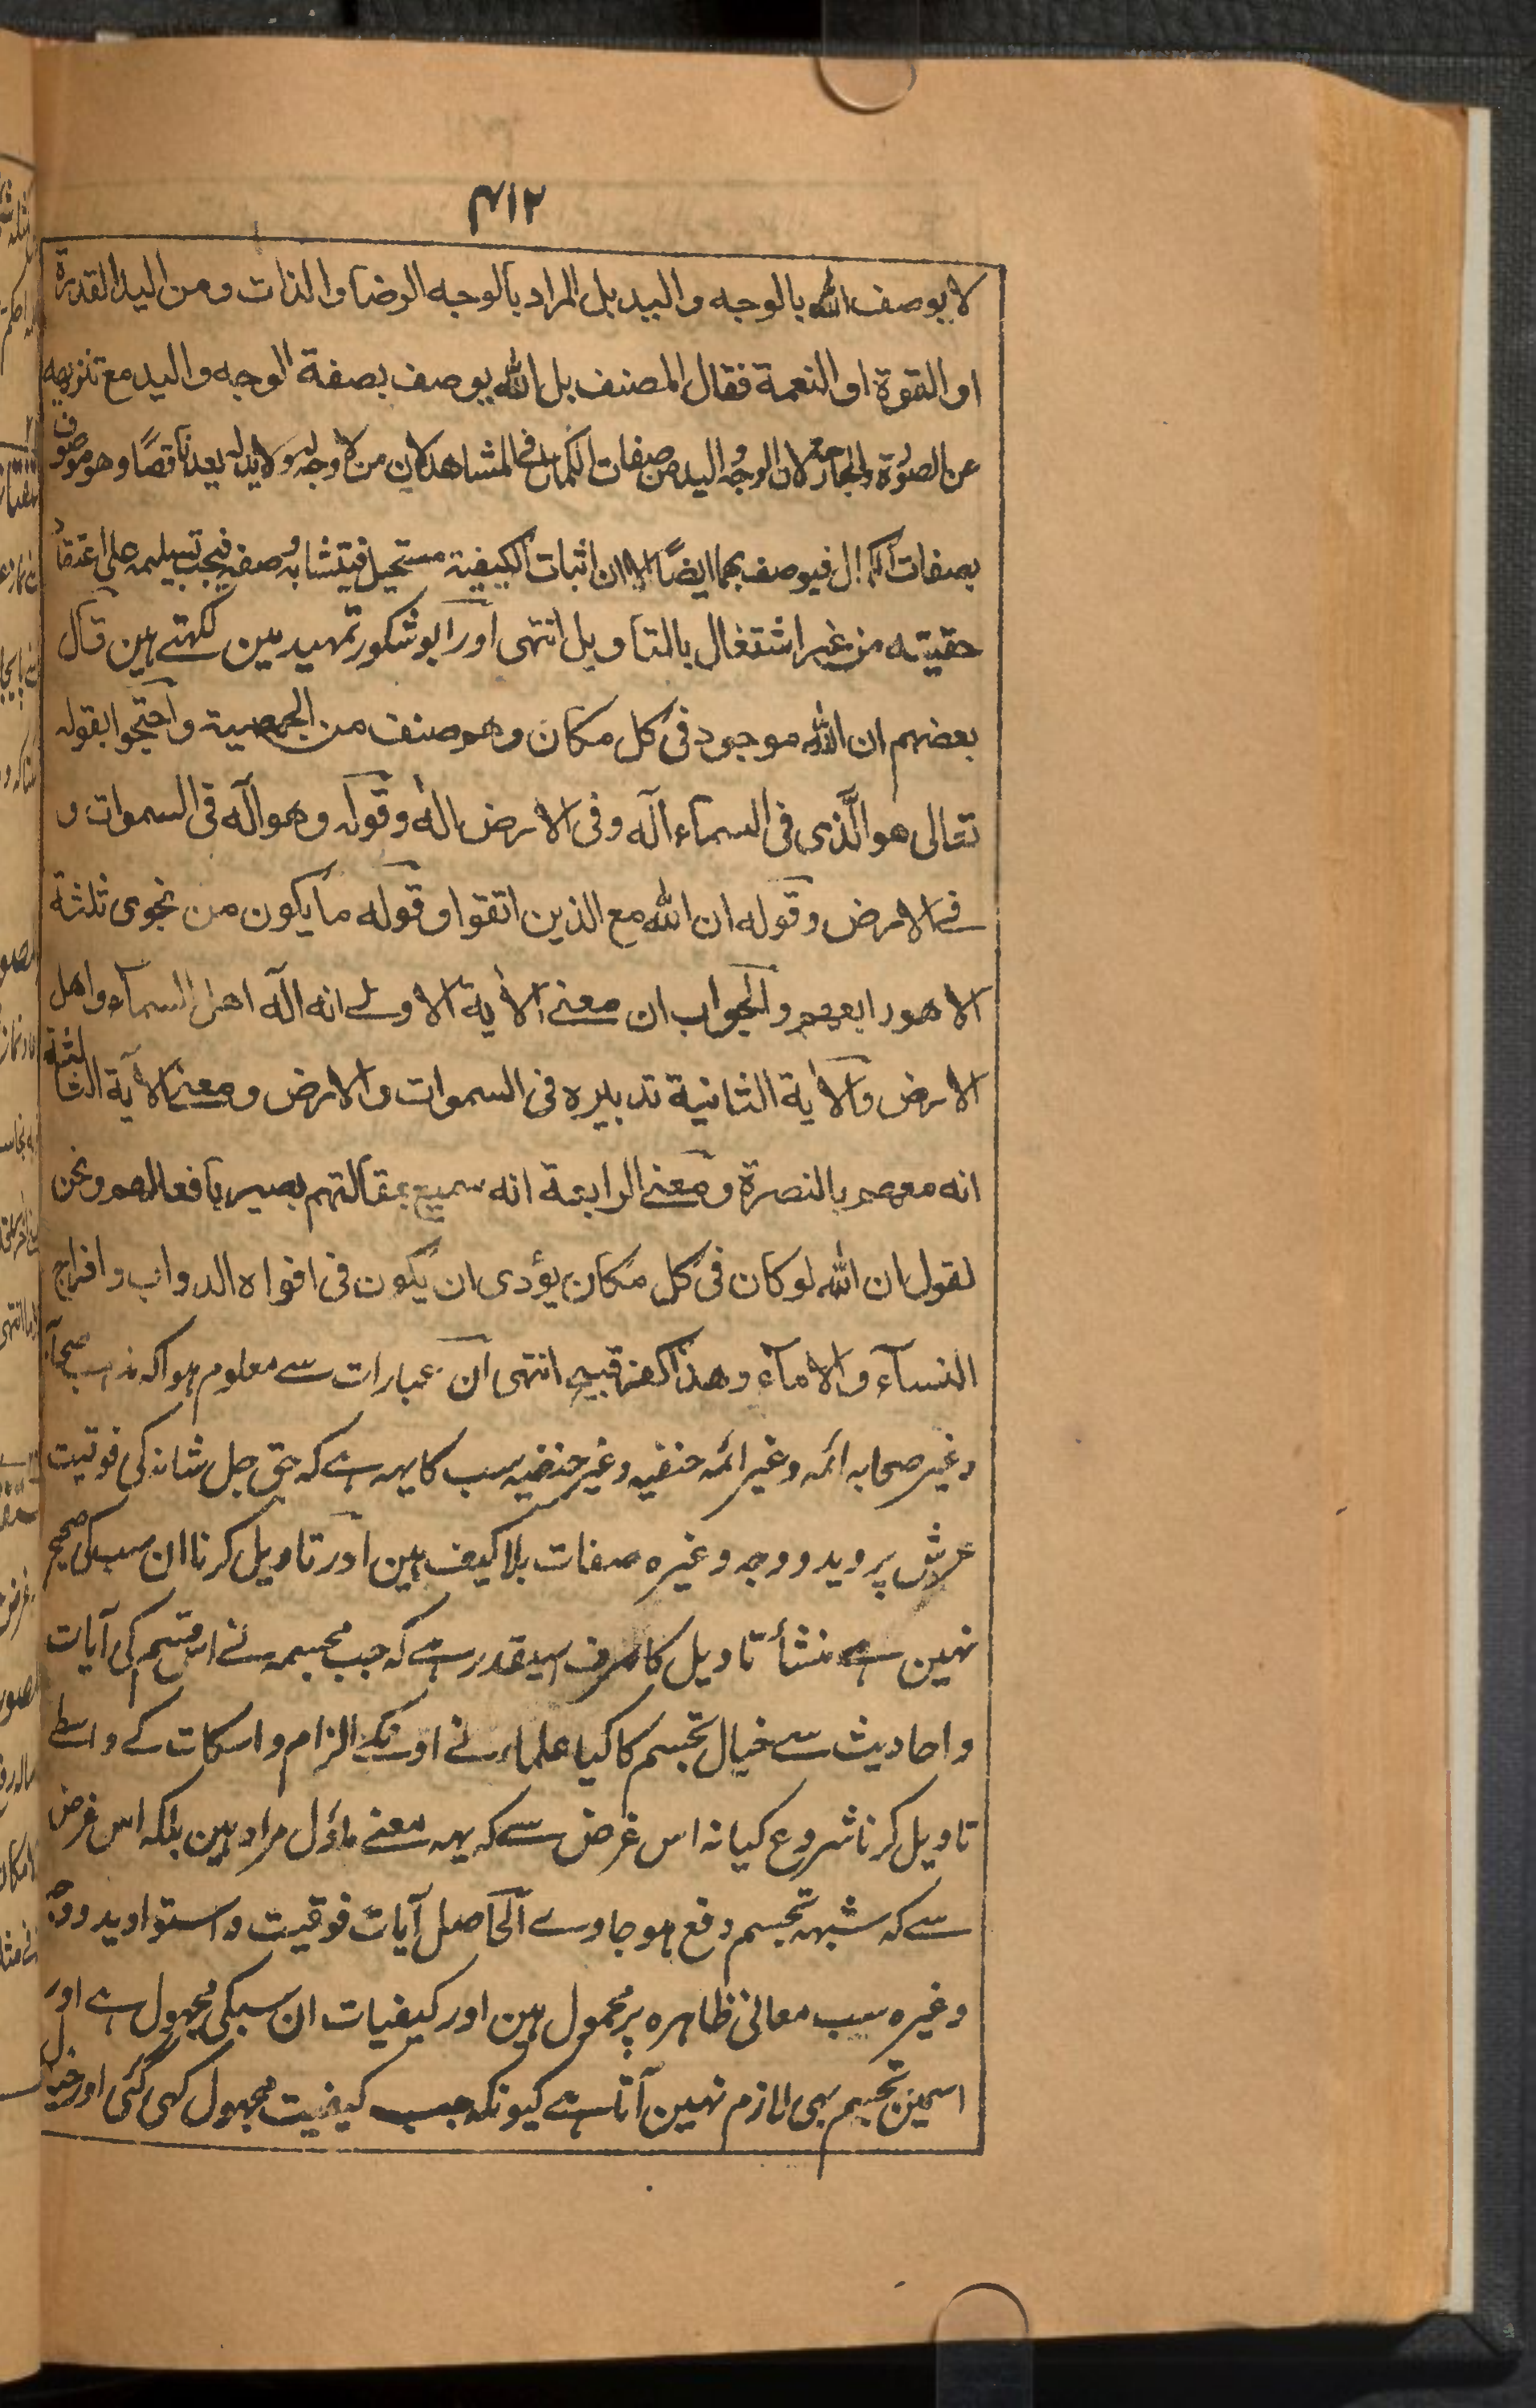 ۴۱۲
لا یوصف الله بالوجه والید بل المراد بالوجه الرضا والذات ومن الید القدرة
او القوة او النعمة فقال المصنف بل الله یوصف بصفة الوجه والید مع تنزیهه
عن الصورة والجارحة لان الوجه والید من صفات الکمال فی المشاهد لان من لا وجه له ولا ید له یعد ناقصًا وهو موصوف
بصفات الکمال فیوصف بهما ایضًا الا ان اثبات الکیفیة مستحیل فیتشابه وصفه فیجب تسلیمه علی اعتقاد
حقیته من غیر اشتغال بالتاویل انتهی اور ابو شکور تمهید مین لکهتے هین قال
بعضهم ان الله موجود فی کل مکان وهو صنف من الجهمیة واحتجوا بقوله
تعالی هو الّذی فی السمآء اله وفی الارض اله وقوله وهو اله فی السموات و
فے الارض وقوله ان الله مع الذین اتقوا وقوله ما یکون من نجوی ثلثة
الا هو رابعهم والجواب ان معنے الآیة الاولے انه اله اهل السمآء واهل
الارض والآیة الثانیة تدبیره فی السموات والارض ومعنے الآیة الثالثة
انه معهم بالنصرة ومعنے الرابعة انه سمیع بمقالتهم بصیر بافعالهم ونحن
نقول ان الله لو کان فی کل مکان یؤدی ان یکون فی افواه الدواب وافراج
النسآء والامآء وهذا کفر قبیح انتهی ان عبارات سے معلوم هوا که مذهب صحابه
وغیر صحابه ائمه وغیر ائمه حنفیه وغیر حنفیه سب کا یهه هے که حق جل شانه کی فوقیت
عرش پر وید ووجه وغیره صفات بلا کیف هین اور تاویل کرنا ان سب کی صحیح
نهین هے منشأ تاویل کا صرف اسیقدر هے که جب مجسمه نے اس قسم کی آیات
واحادیث سے خیال تجسم کا کیا علماء نے اونکے الزام واسکات کے واسطے
تاویل کرنا شروع کیا نه اس غرض سے که یهه معنے ماؤل مراد هین بلکه اس غرض
سے که شبهه تجسم دفع هو جاوے الحاصل آیات فوقیت واستوا وید ووجه
وغیره سب معانی ظاهره پر محمول هین اور کیفیات ان سبکی مجهول هے اور
اسمین تجسم بهی لازم نهین آتا هے کیونکه جب کیفیت مجهول کهی گئی اور خیال